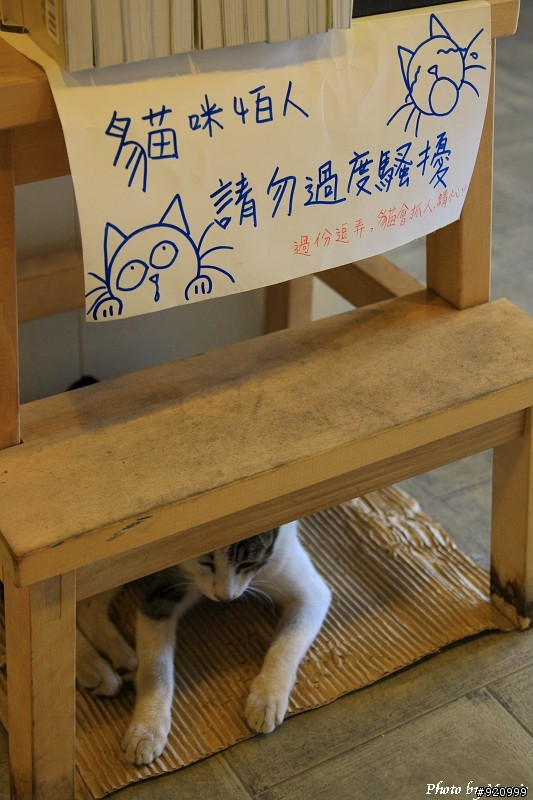 貓咪怕人
請勿過度騷擾
過份逗弄,貓會抓人,請小心!
Photo by
#920999